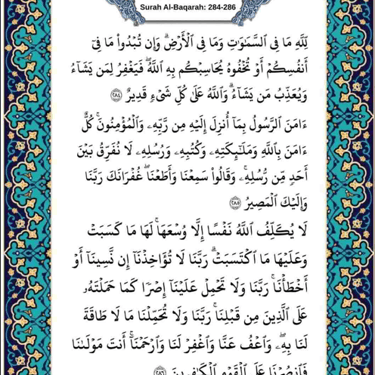 Surah Al-Baqarah: 284-286
لِلَّهِ مَا فِي السَّمَٰوَٰتِ وَمَا فِي الْأَرْضِ ۗ وَإِن تُبْدُوا۟ مَا فِىٓ
أَنفُسِكُمْ أَوْ تُخْفُوهُ يُحَاسِبْكُم بِهِ اللَّهُ ۖ فَيَغْفِرُ لِمَن يَشَآءُ
وَيُعَذِّبُ مَن يَشَآءُ ۗ وَاللَّهُ عَلَىٰ كُلِّ شَىْءٍ قَدِيرٌ ٢٨٤
ءَامَنَ الرَّسُولُ بِمَآ أُنزِلَ إِلَيْهِ مِن رَّبِّهِۦ وَالْمُؤْمِنُونَ ۚ كُلٌّ
ءَامَنَ بِاللَّهِ وَمَلَٰٓئِكَتِهِۦ وَكُتُبِهِۦ وَرُسُلِهِۦ لَا نُفَرِّقُ بَيْنَ
أَحَدٍ مِّن رُّسُلِهِۦ ۚ وَقَالُوا۟ سَمِعْنَا وَأَطَعْنَا ۖ غُفْرَانَكَ رَبَّنَا
وَإِلَيْكَ الْمَصِيرُ ٢٨٥
لَا يُكَلِّفُ اللَّهُ نَفْسًا إِلَّا وُسْعَهَا ۚ لَهَا مَا كَسَبَتْ
وَعَلَيْهَا مَا اكْتَسَبَتْ ۗ رَبَّنَا لَا تُؤَاخِذْنَآ إِن نَّسِينَآ أَوْ
أَخْطَأْنَا ۚ رَبَّنَا وَلَا تَحْمِلْ عَلَيْنَآ إِصْرًا كَمَا حَمَلْتَهُۥ
عَلَى الَّذِينَ مِن قَبْلِنَا ۚ رَبَّنَا وَلَا تُحَمِّلْنَا مَا لَا طَاقَةَ
لَنَا بِهِۦ ۖ وَاعْفُ عَنَّا وَاغْفِرْ لَنَا وَارْحَمْنَآ ۚ أَنتَ مَوْلَىٰنَا
فَانصُرْنَا عَلَى الْقَوْمِ الْكَٰفِرِينَ ٢٨٦